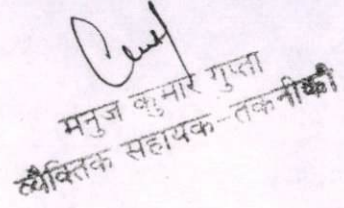 मनुज कुमार गुप्ता
वैयक्तिक सहायक-तकनीकी